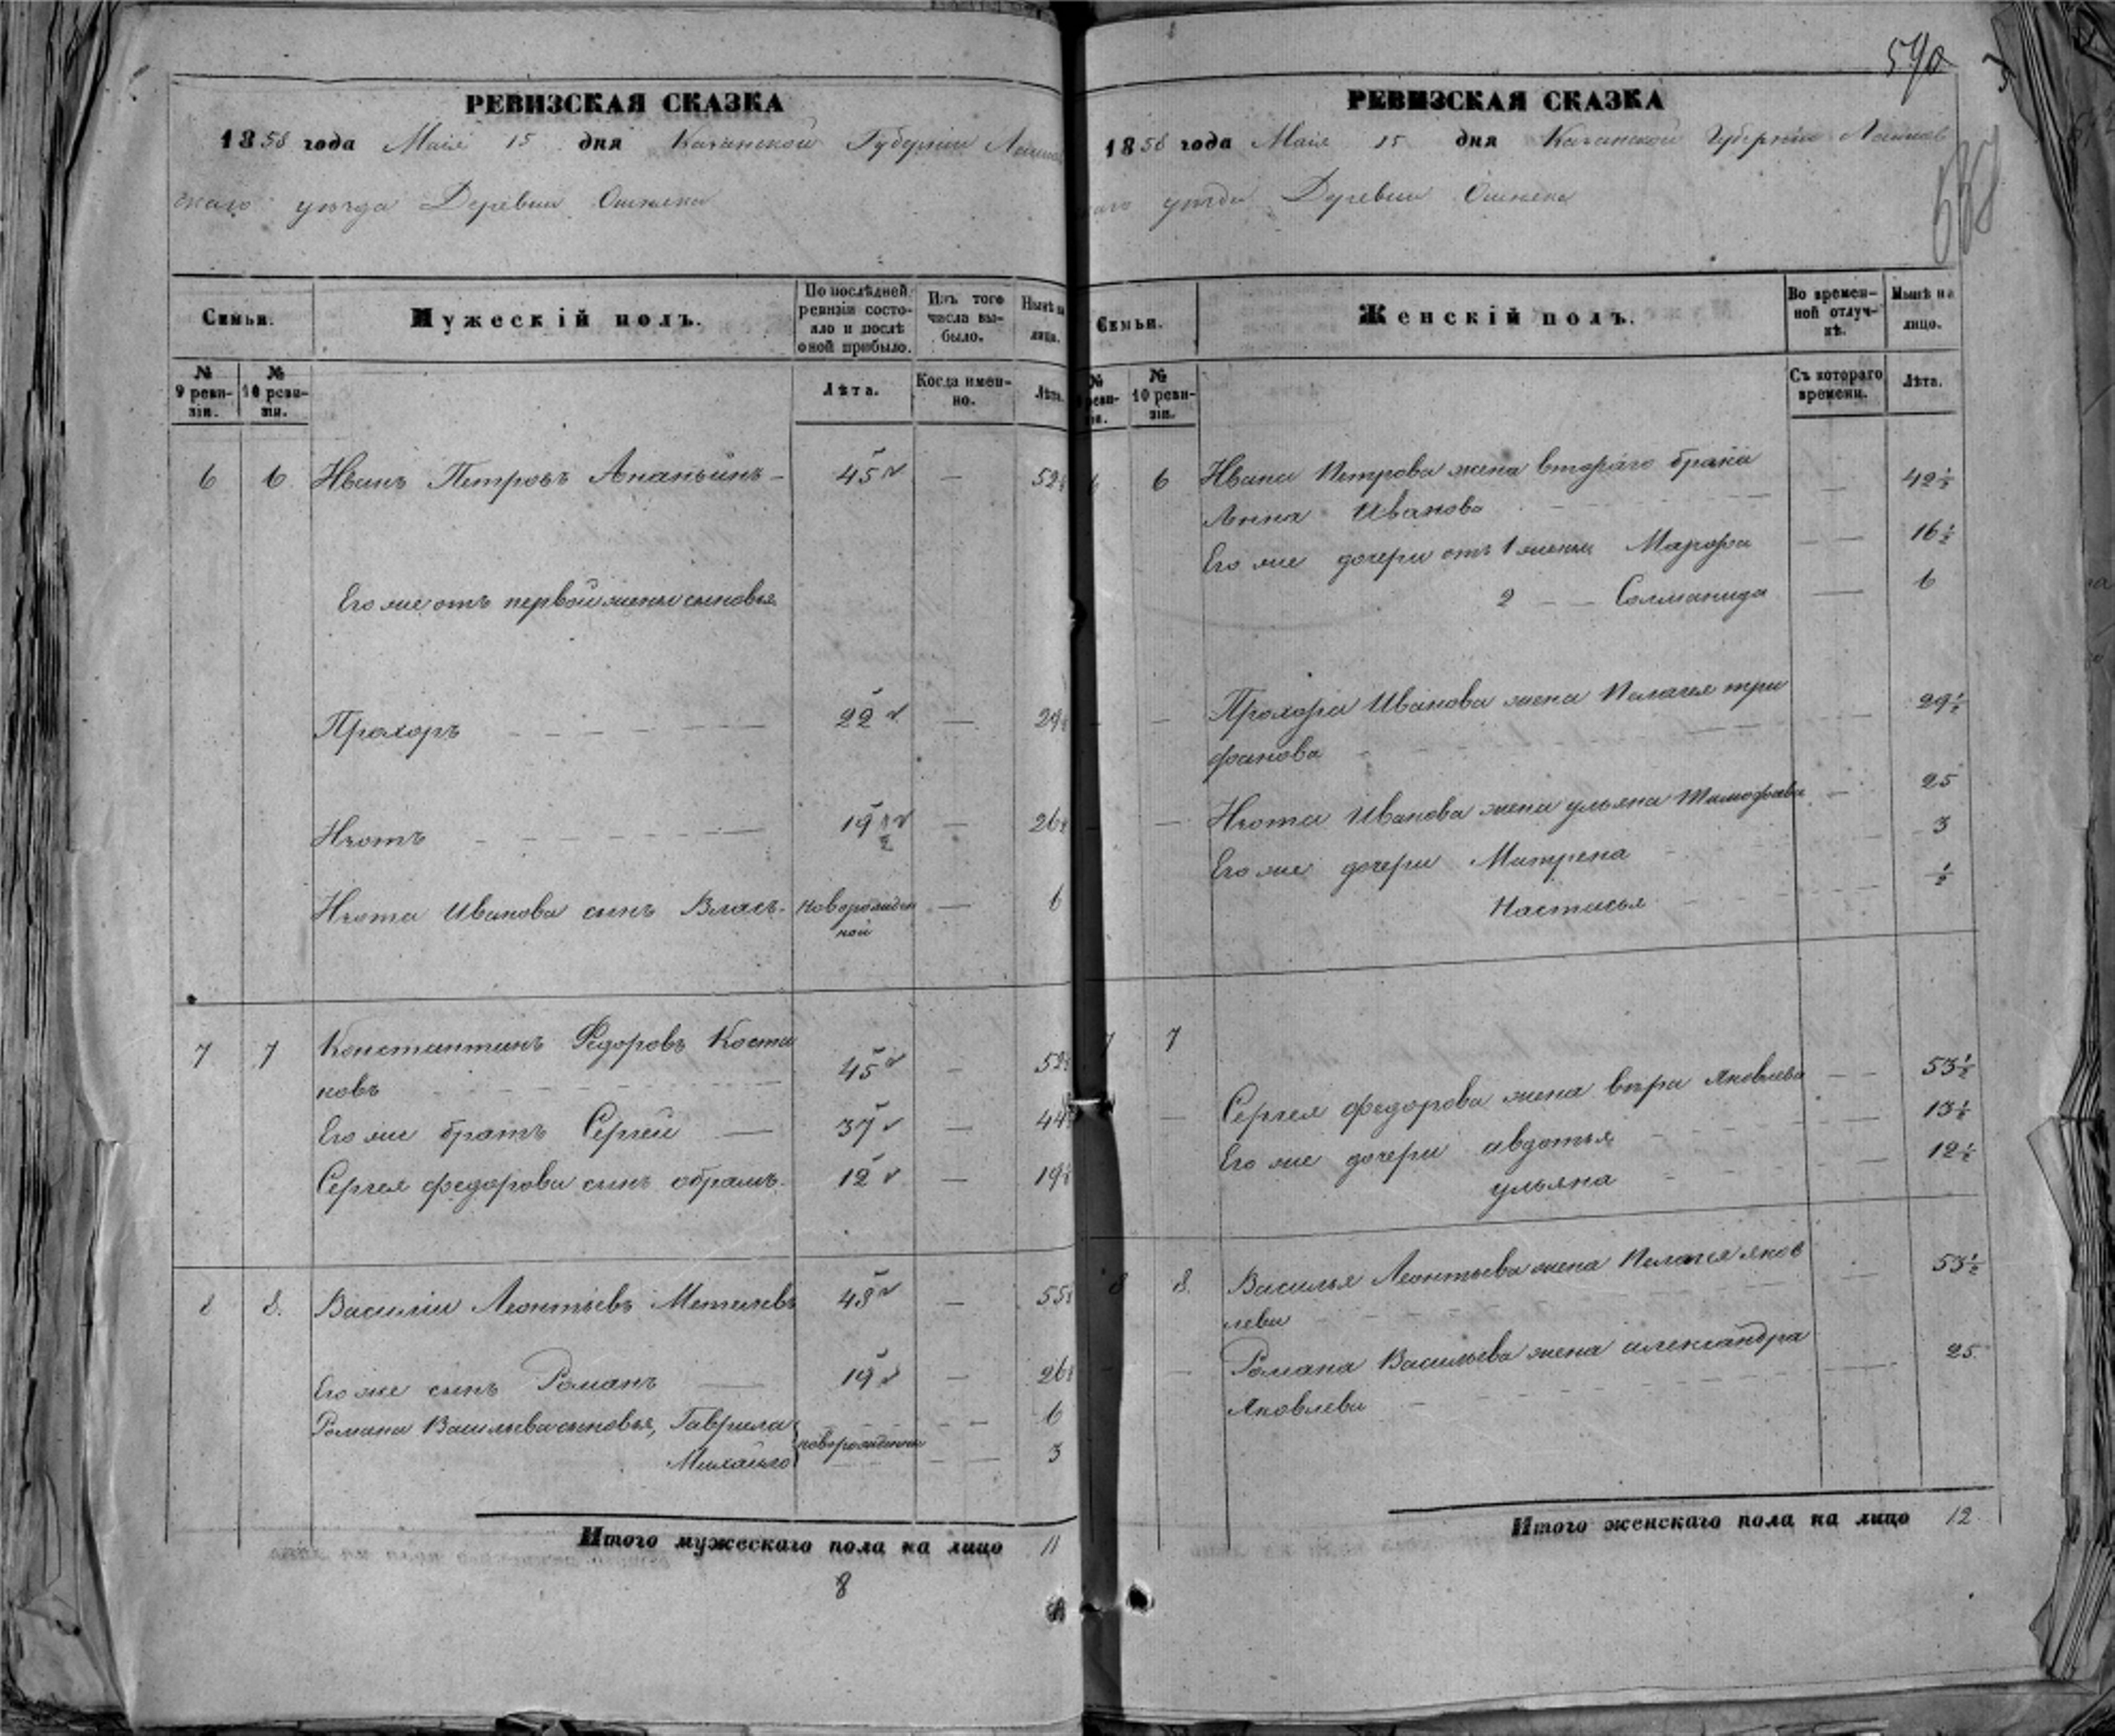 590
РЕВИЗСКАЯ СКАЗКА
1858 года Маія 15 дня Казанской Губерніи Лаишев
скаго уезда Деревни Ошняка
Семьи.
Мужескій полъ.
По послѣдней ревизіи состояло и послѣ оной прибыло.
Изъ того числа выбыло.
Нынѣ на лицо.
№ 9 ревизіи.
№ 10 ревизіи.
Лѣта.
Когда именно.
Лѣта.
6 6 Иванъ Петровъ Ананьинъ - 45 — 52½
Его же отъ первой жены сыновья
Прохоръ 22 — 29½
Изотъ 19½ — 26½
Изота Иванова сынъ Власъ. новорожден — 6
ной
7 7 Константинъ Федоровъ Кости
новъ 45 — 52½
Его же братъ Сергей — 37 — 44½
Сергея федорова сынъ абрамъ. 12 — 19½
8 8. Василіи Леонтьевъ Метелевъ 48 — 55½
Его же сынъ Романъ — 19 — 26½
Романа Васильева сыновья, Гаврила 6
новорожденны
Михайло 3
Итого мужескаго пола на лицо 11
8
РЕВИЗСКАЯ СКАЗКА
1858 года Маія 15 дня Казанской Губерніи Лаишев
скаго уезда Деревни Ошняка
Семьи.
Женскій полъ.
Во временной отлучкѣ.
Нынѣ на лицо.
№ 9 ревизіи.
№ 10 ревизіи.
Съ котораго времени.
Лѣта.
6 6 Ивана Петрова жена втораго брака — 42½
Анна Иванова
Его же дочери отъ 1 жены Марфа — — 16½
2 — — Соломанида — 6
Прохора Иванова жена Палагея три — 29½
фанова
Изота Иванова жена ульяна Тимофеева — 25
Его же дочери Матрена 3
Настасья ½
7 7
Сергея федорова жена вѣра Яковлева — — 53½
Его же дочери авдотья 13½
ульяна 12½
8 8. Василья Леонтьева жена Пелагея яков — 53½
лева
Романа Васильева жена александра — 25.
Яковлева
Итого женскаго пола на лицо 12